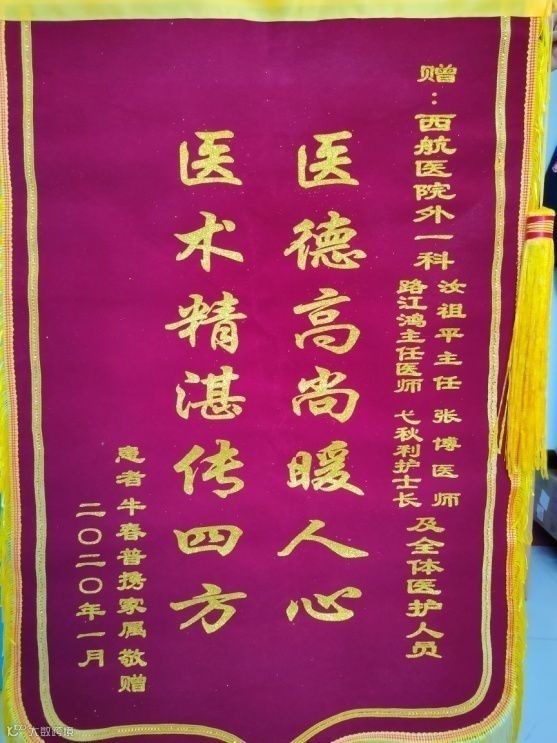 赠：西航医院外一科 汝祖平主任 张博医师 及全体医护人员
路江鸿主任医师 弋秋利护士长
医德高尚暖人心
医术精湛传四方
患者牛春普携家属敬赠
二〇二〇年一月
大数跨境